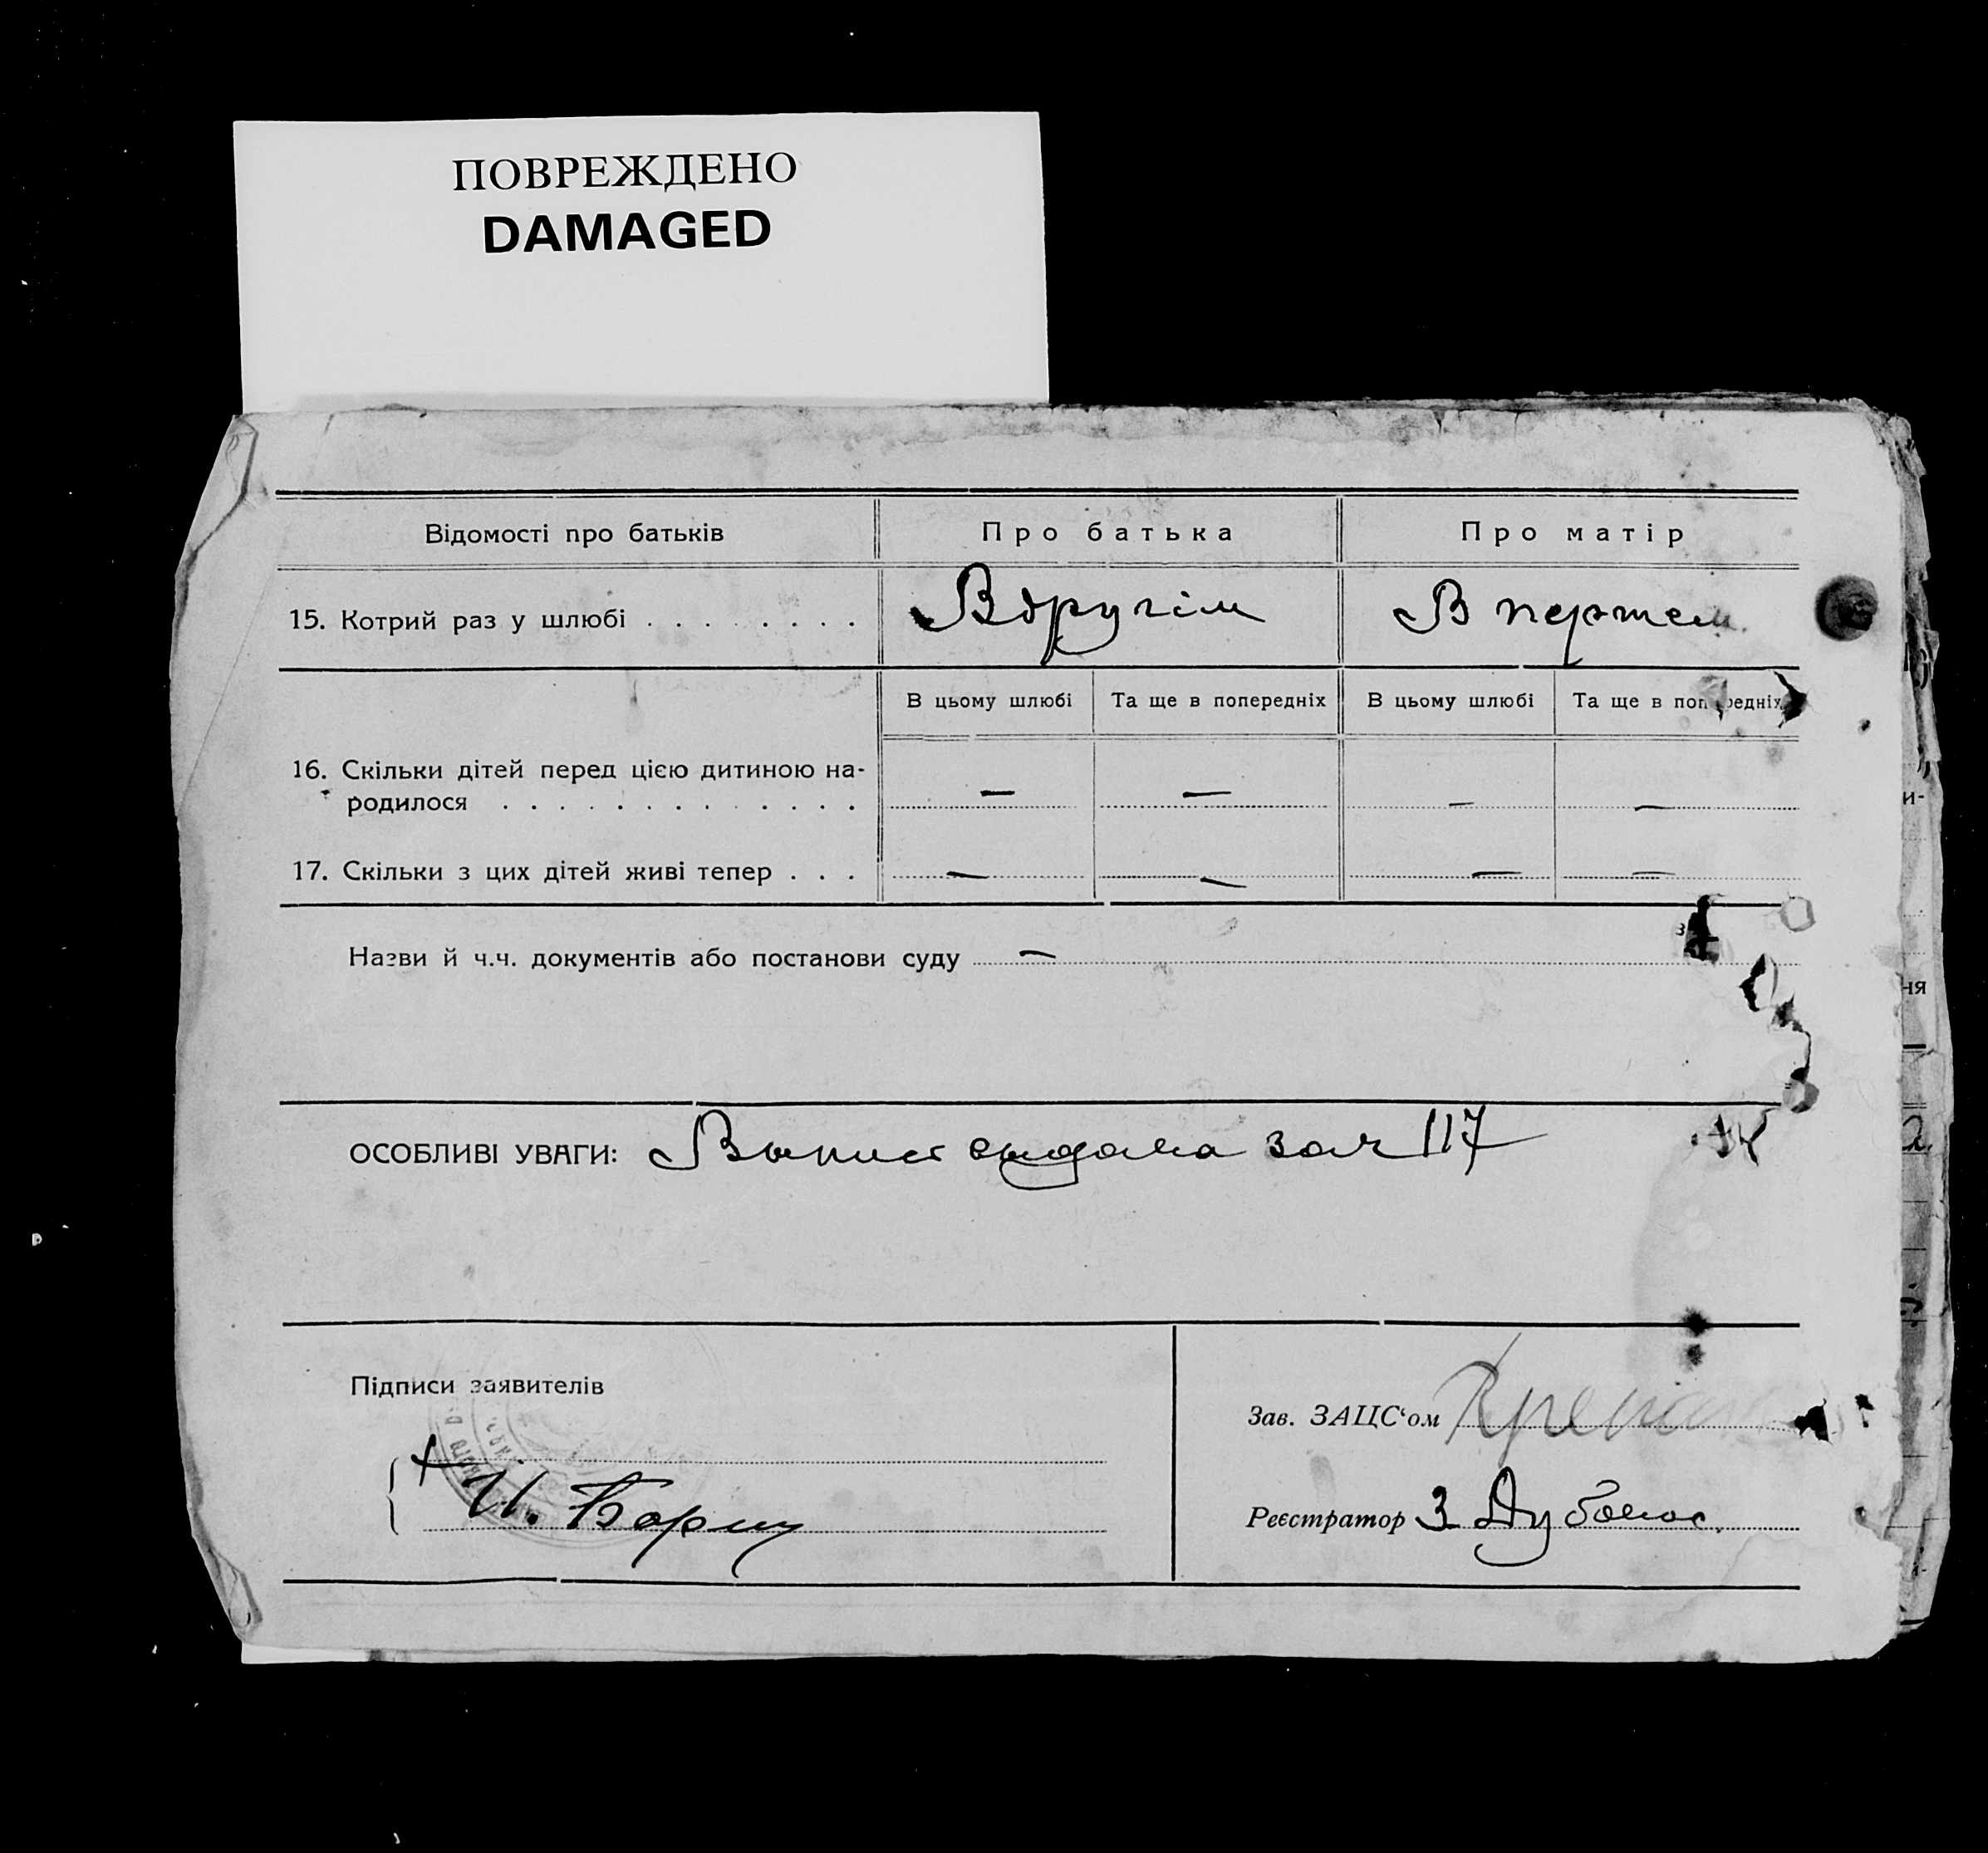 ПОВРЕЖДЕНО
DAMAGED
Відомості про батьків
Про батька
Про матір
15. Котрий раз у шлюбі . . . . . . . .
Вдругім
В першем
В цьому шлюбі
Та ще в попередніх
В цьому шлюбі
Та ще в попередніх
16. Скільки дітей перед цією дитиною на-
родилося . . . . . . . . . . . . .
— — — —
17. Скільки з цих дітей живі тепер . . .
— — — —
Назви й ч.ч. документів або постанови суду —
ОСОБЛИВІ УВАГИ: Выпись выдана за ч 117
Підписи заявителів
И.
Зав. ЗАЦС‘ом
Реєстратор З Дубонос